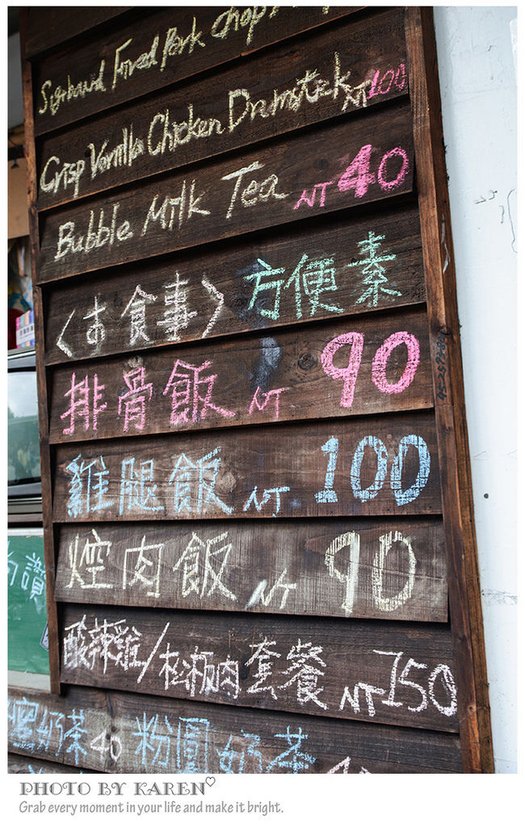 Fried Pork chop
Crisp Vanilla Chicken Drumstick NT100
Bubble Milk Tea NT 40
〈お食事〉方便素
排骨飯 NT 90
雞腿飯 NT 100
焢肉飯 NT 90
酸辣雞/松板肉套餐 NT150
蜜奶茶 40 粉圓奶茶
PHOTO BY KAREN♡
Grab every moment in your life and make it bright.